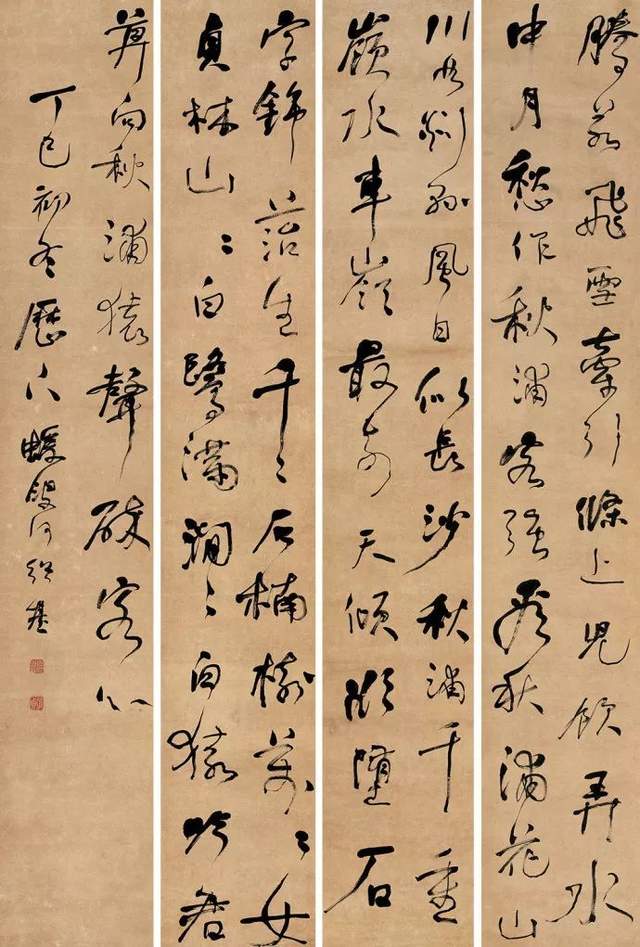 騰若飛雪牽引條上兒飲弄水
中月愁作秋浦客强看秋浦花山
川如剡縣風日似長沙秋浦千重
嶺水車嶺最奇天傾欲墮石
字錦苔生千〻石楠樹萬〻女
貞林山〻白鷺滿澗〻白猿吟君
莫向秋浦猿聲碎客心
丁巳初冬歷下蝯叟何紹基